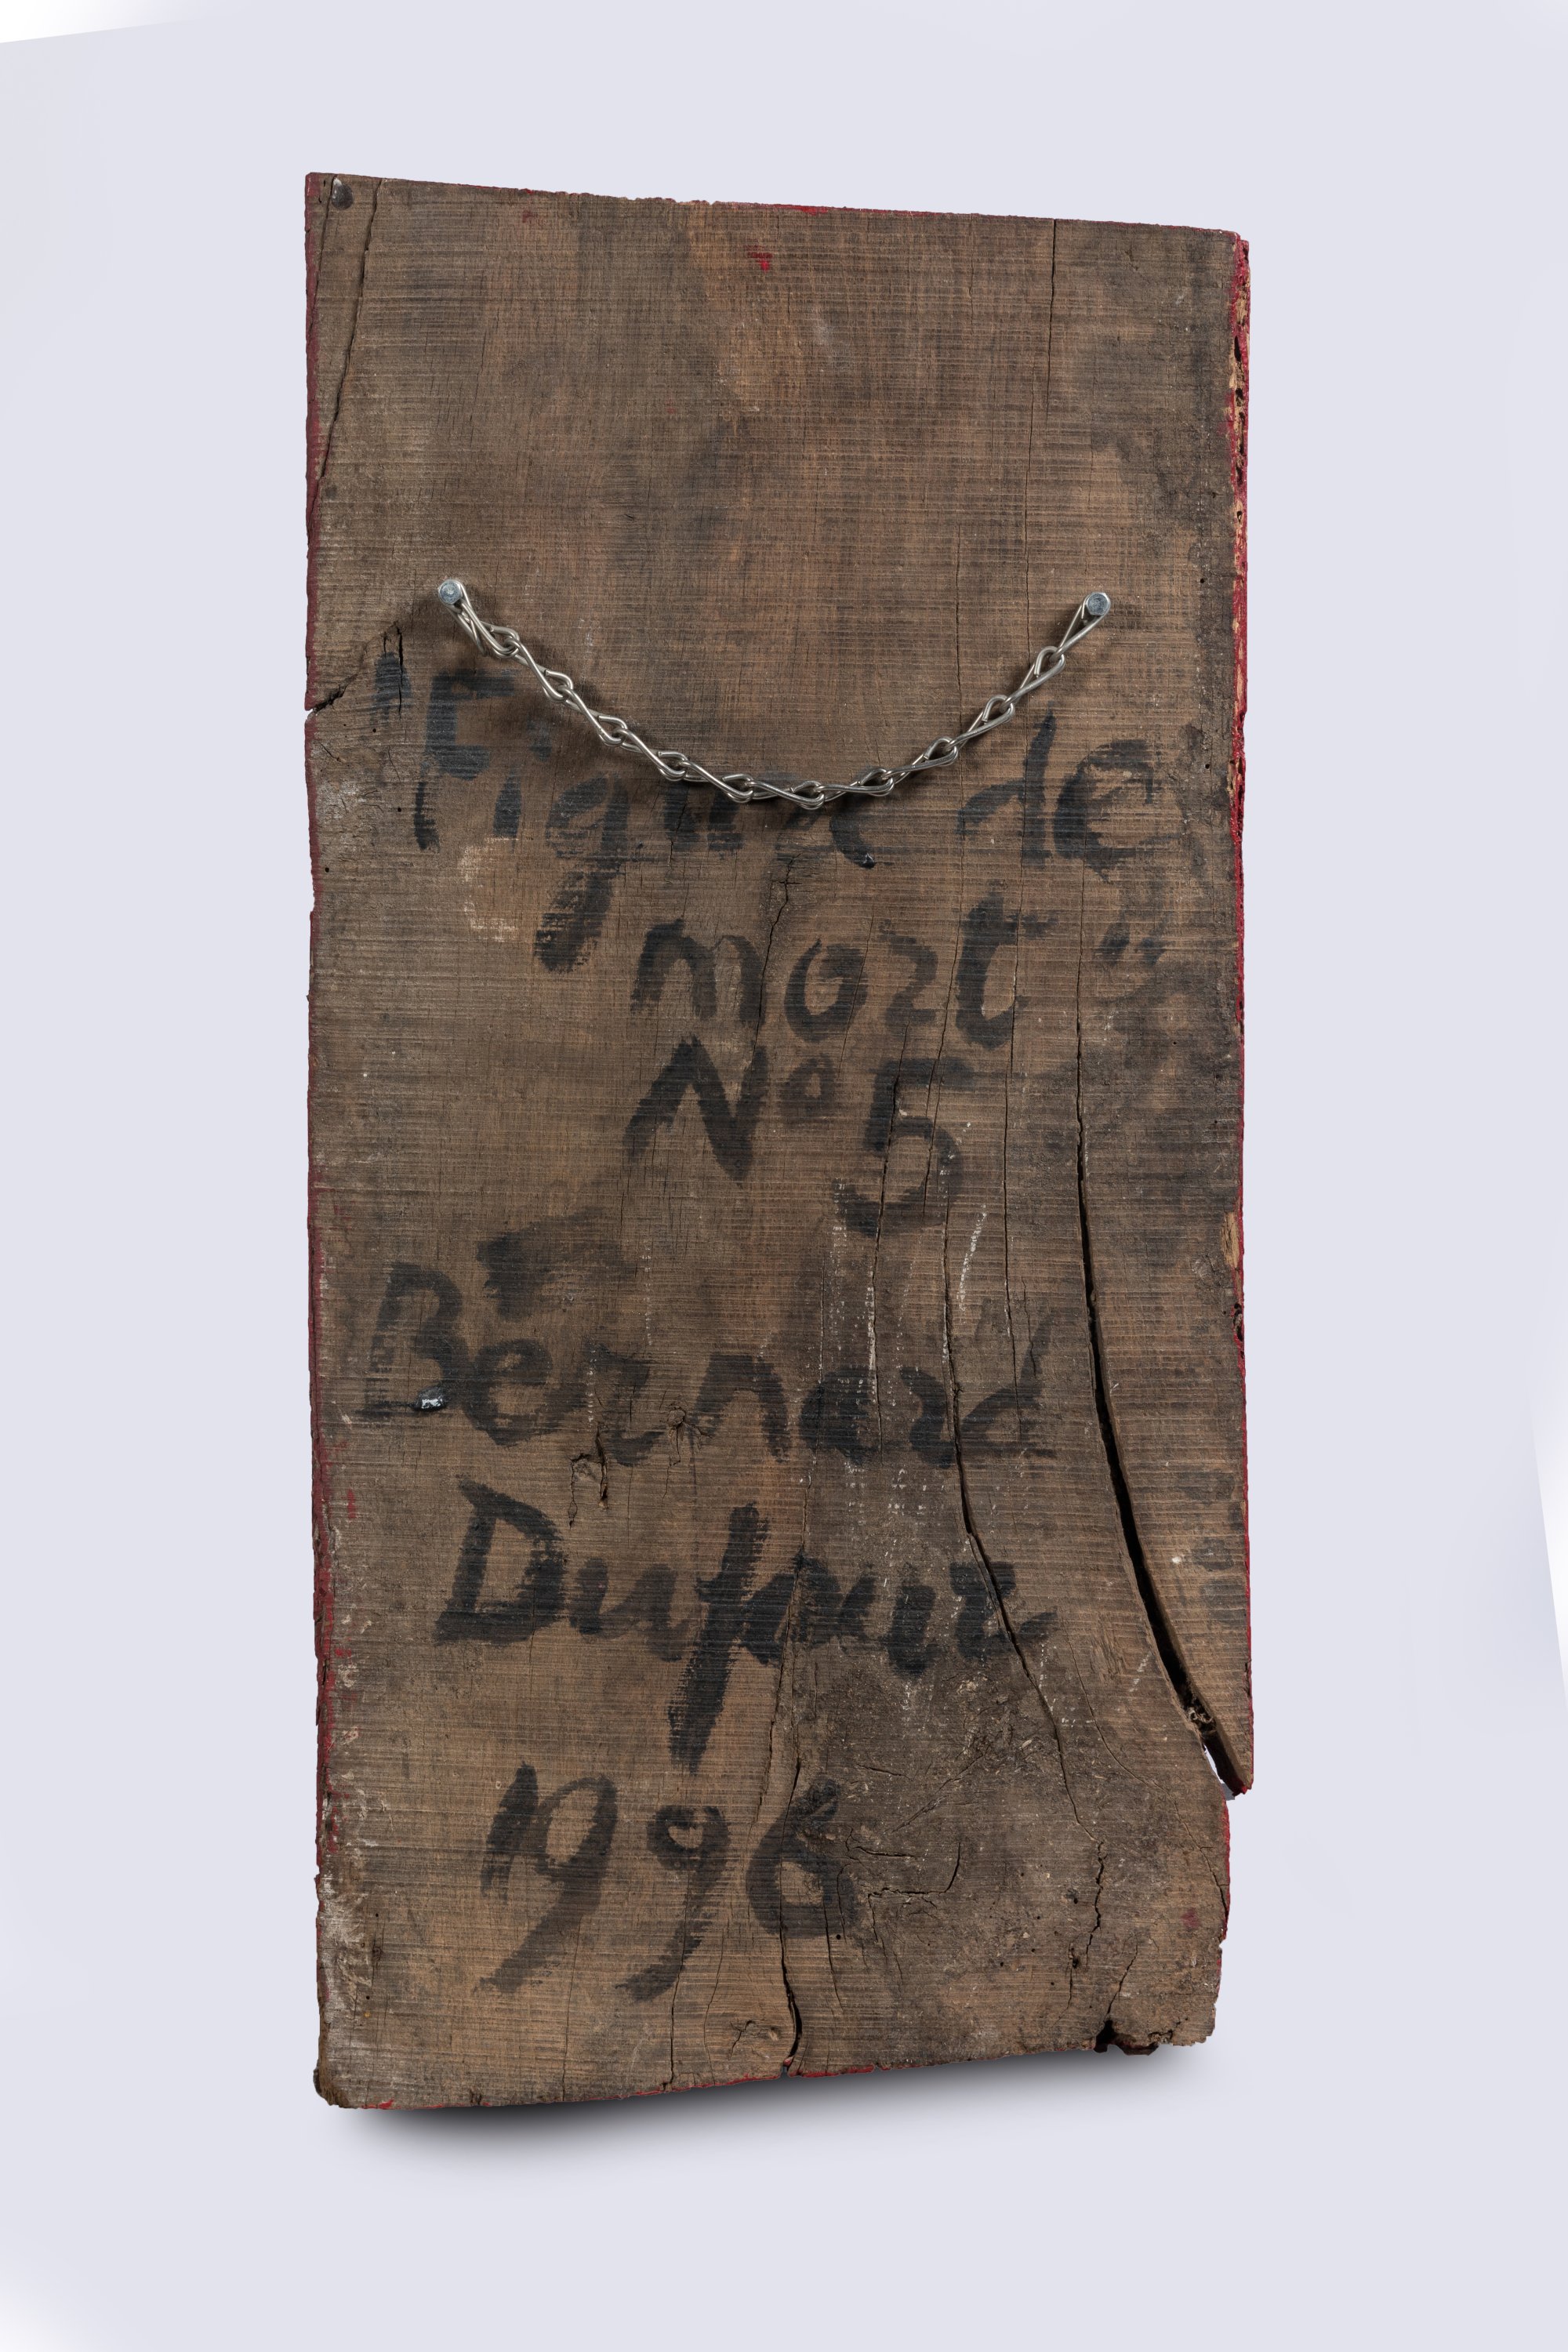 "Figure de
mort"
Nº 5
Bernard
Dufour
1996